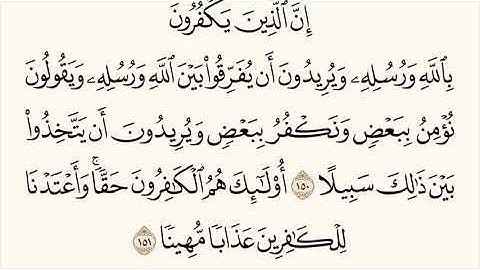 إِنَّ ٱلَّذِينَ يَكۡفُرُونَ
بِٱللَّهِ وَرُسُلِهِۦ وَيُرِيدُونَ أَن يُفَرِّقُواْ بَيۡنَ ٱللَّهِ وَرُسُلِهِۦ وَيَقُولُونَ
نُؤۡمِنُ بِبَعۡضٖ وَنَكۡفُرُ بِبَعۡضٖ وَيُرِيدُونَ أَن يَتَّخِذُواْ
بَيۡنَ ذَٰلِكَ سَبِيلًا ١٥٠ أُوْلَٰٓئِكَ هُمُ ٱلۡكَٰفِرُونَ حَقّٗاۚ وَأَعۡتَدۡنَا
لِلۡكَٰفِرِينَ عَذَابٗا مُّهِينٗا ١٥١